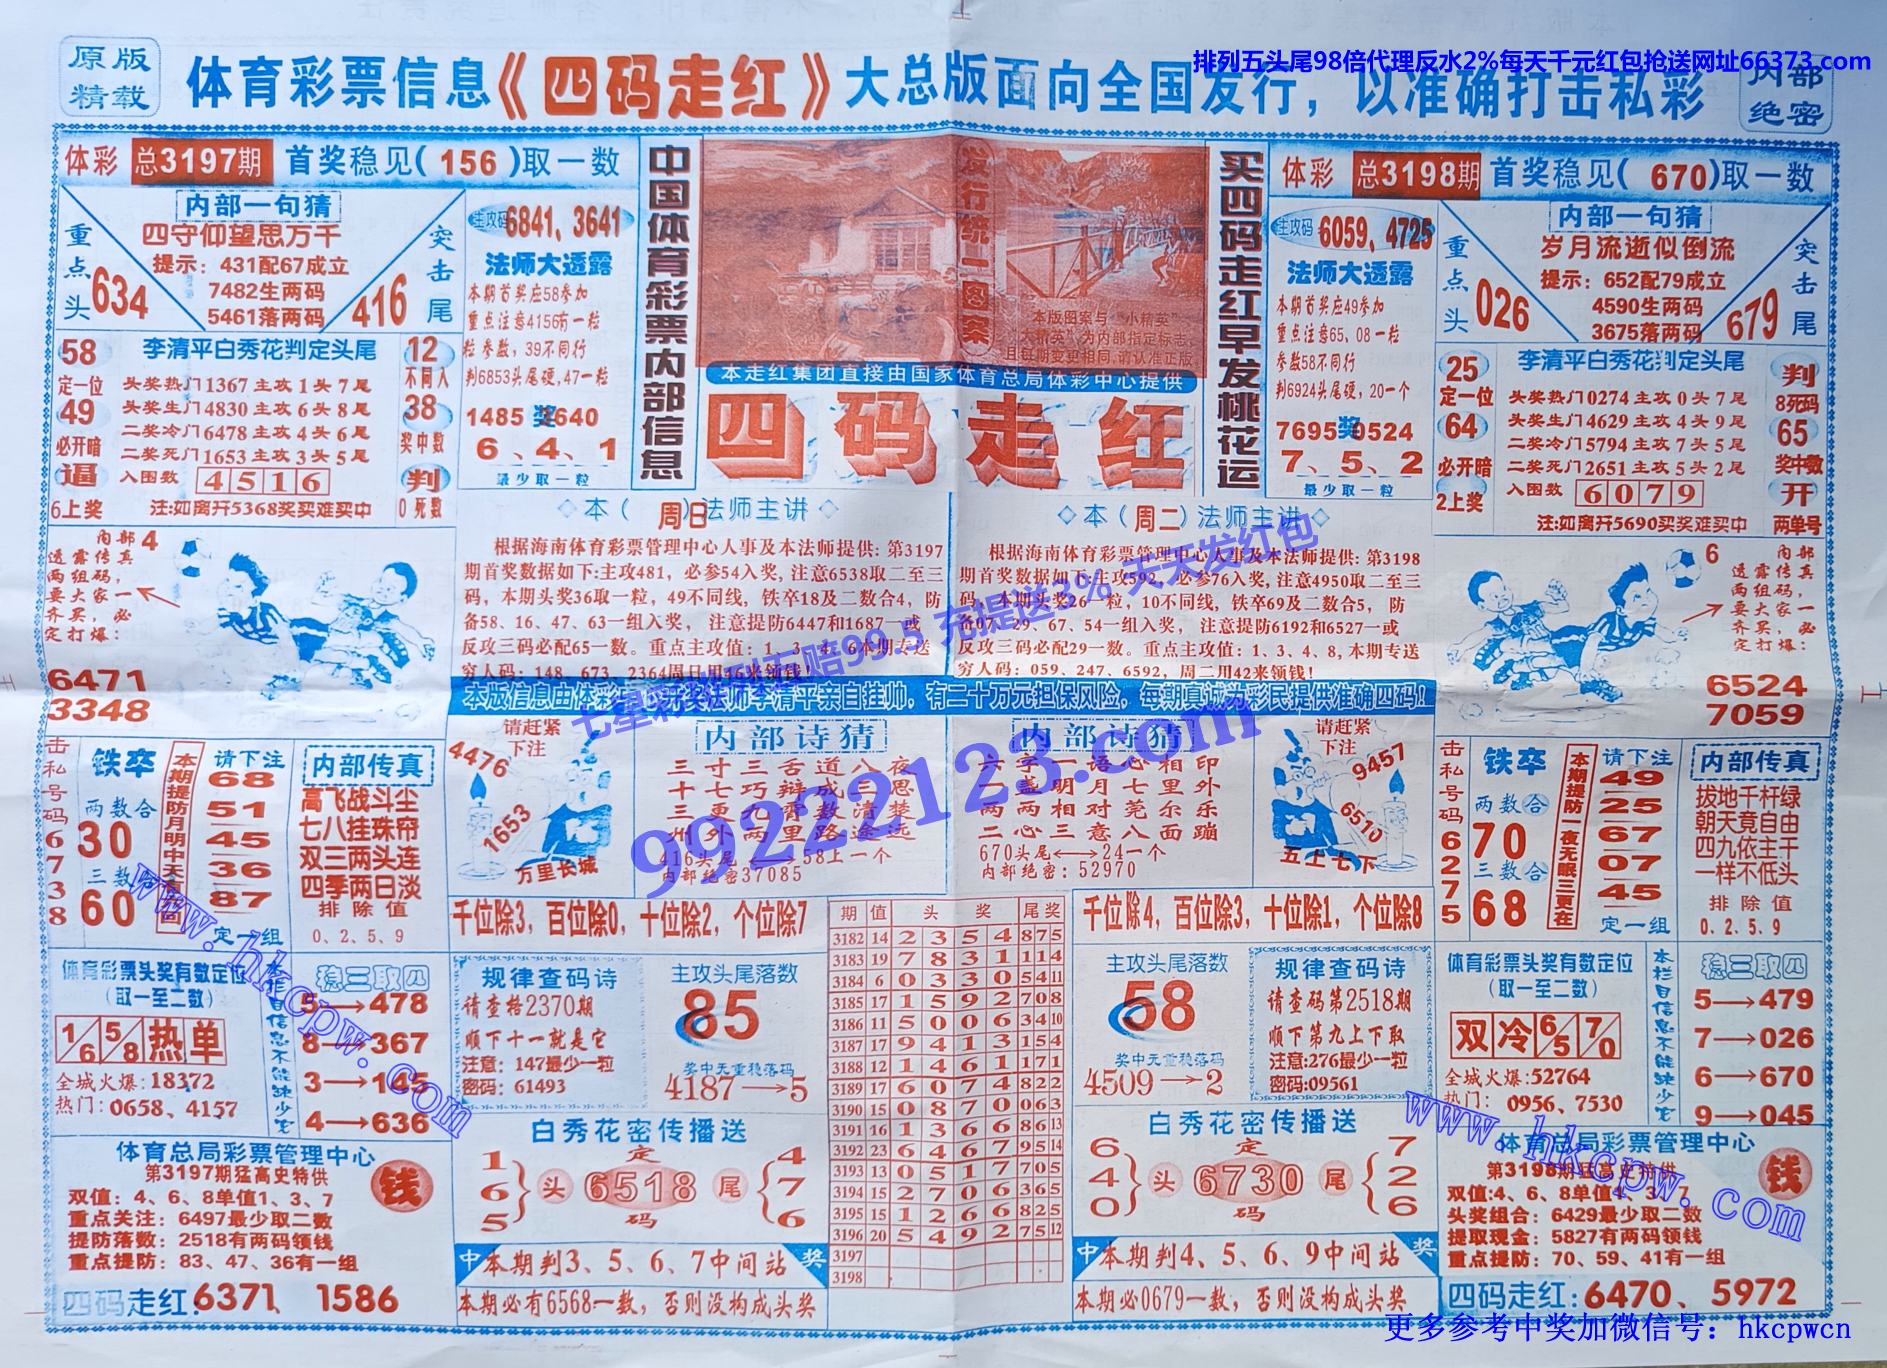 原版
精载
体育彩票信息《四码走红》大总版面向全国发行，以准确打击私彩
排列五头尾98倍代理反水2%每天千元红包抢送网址66373.com
内部
绝密
体彩 总3197期 首奖稳见(156)取一数
内部一句猜
四守仰望思万千
提示：431配67成立
7482生两码
5461落两码
重点头
634
突击尾
416
主攻码 6841、3641
法师大透露
本期首奖应58参加
重点注意4156有一粒
粒参数，39不同行
判6853头尾硬,47一粒
1485 奖 2640
6、4、1
最少取一粒
58
定一位
49
必开暗
逼
6上奖
李清平白秀花判定头尾
头奖热门1367主攻1头7尾
头奖生门4830主攻6头8尾
二奖冷门6478主攻4头6尾
二奖死门1653主攻3头5尾
入围数 4516
注:如离开5368奖买难买中
12
不同人
38
奖中数
判
0死数
中国体育彩票内部信息
发行统一图案
本版图案与“小精英”
大精英”为内部指定标志
且每期变更相同,请认准正版
本走红集团直接由国家体育总局体彩中心提供
四码走红
买四码走红早发桃花运
体彩 总3198期 首奖稳见(670)取一数
主攻码 6059、4725
法师大透露
本期首奖应49参加
重点注意65、08一粒
参数58不同行
判6924头尾硬，20一个
7695 奖 0524
7、5、2
最少取一粒
内部一句猜
岁月流逝似倒流
提示：652配79成立
4590生两码
3675落两码
重点头
026
突击尾
679
25
定一位
64
必开暗
2上奖
李清平白秀花判定头尾
头奖热门0274主攻0头7尾
头奖生门4629主攻4头9尾
二奖冷门5794主攻7头5尾
二奖死门2651主攻5头2尾
入围数 6079
注:如离开5690买奖难买中
判
8死码
65
奖中数
开
两单号
内部
透露传真
两组码，
要大家一
齐买，必
定打爆：
4
6471
3348
◇本(周日)法师主讲◇
根据海南体育彩票管理中心人事及本法师提供: 第3197
期首奖数据如下:主攻481，必参54入奖, 注意6538取二至三
码，本期头奖36取一粒，49不同线, 铁卒18及二数合4，防
备58、16、47、63一组入奖， 注意提防6447和1687一或
反攻三码必配65一数。重点主攻值: 1、3、4、6本期专送
穷人码: 148、673、2364周日用46来领钱!
◇本(周二)法师主讲◇
根据海南体育彩票管理中心人事及本法师提供: 第3198
期首奖数据如下:主攻592, 必参76入奖, 注意4950取二至三
码，本期头奖26一粒，10不同线，铁卒69及二数合5， 防
备07、29、67、54一组入奖， 注意提防6192和6527一或
反攻三码必配29一数。重点主攻值: 1、3、4、8, 本期专送
穷人码: 059、247、6592，周二用42来领钱!
6
内部
透露传真
两组码，
要大家一
齐买，必
定打爆：
6524
7059
本版信息由体彩中心开奖法师李清平亲自挂帅，有二十万元担保风险，每期真诚为彩民提供准确四码!
击私号码67738
铁卒
两数合
30
三数合
60
请下注
68
51
45
36
87
定一组
内部传真
高飞战斗尘
七八挂珠帘
双三两头连
四季两日淡
排除值
0、2、5、9
请赶紧
下注
4476
1653
万里长城
内部诗猜
三寸三舌道八夜
十七巧辩成三思
三更九霄数清楚
州外两里路途远
416头尾⟷58上一个
内部绝密37085
内部诗猜
六字一语心相印
一盏明月七里外
两两相对莞尔乐
二心三意八面蹦
670头尾⟷24一个
内部绝密：52970
请赶紧
下注
9457
6510
五上七下
击私号码66275
铁卒
两数合
70
三数合
68
本期提防一夜无眠三更在
请下注
49
25
67
07
45
定一组
内部传真
拔地千杆绿
朝天竟自由
四九依主干
一样不低头
排除值
0、2、5、9
千位除3，百位除0，十位除2，个位除7
千位除4，百位除3，十位除1，个位除8
体育彩票头奖有数定位
(取一至二数)
1/6 5/8 热 单
全城火爆:18372
热门：0658、4157
本栏目信息不能缺少它
稳三取四
5→478
8→367
3→145
4→636
规律查码诗
请查格2370期
顺下十一就是它
注意：147最少一粒
密码：61493
主攻头尾落数
85
奖中无重稳落码
4187→5
期 值 头奖 尾奖
3182 14 2 3 5 4 875
3183 19 7 8 3 1 114
3184 6 0 3 3 0 5411
3185 17 1 5 9 2 708
3186 11 5 0 0 6 3410
3187 17 9 4 1 3 154
3188 12 1 4 6 1 171
3189 17 6 0 7 4 822
3190 15 0 8 7 0 063
3191 16 1 3 6 6 8613
3192 23 6 4 6 7 9514
3193 13 0 5 1 7 705
3194 15 2 7 0 6 365
3195 15 1 2 6 6 825
3196 20 5 4 9 2 7512
3197
3198
主攻头尾落数
58
奖中无重稳落码
4509→2
规律查码诗
请查码第2518期
顺下第九上下取
注意:276最少一粒
密码:09561
体育彩票头奖有数定位
(取一至二数)
双 冷 6/5 7/0
全城火爆:52764
热门： 0956、7530
本栏目信息不能缺少它
稳三取四
5→479
7→026
6→670
9→045
体育总局彩票管理中心
第3197期猛高史特供
双值：4、6、8单值1、3、7
重点关注：6497最少取二数
提防落数：2518有两码领钱
重点提防：83、47、36有一组
钱
四码走红:6371、1586
白秀花密传播送
1
6
5
头
定
6518
码
尾
4
7
6
中 本期判3、5、6、7中间站 奖
本期必有6568一数，否则没构成头奖
白秀花密传播送
6
4
0
头
定
6730
码
尾
7
2
6
中 本期判4、5、6、9中间站 奖
本期必0679一数，否则没构成头奖
体育总局彩票管理中心
第3198期猛高史特供
双值:4、6、8单值4、3、7
头奖组合：6429最少取二数
提取现金：5827有两码领钱
重点提防：70、59、41有一组
钱
四码走红:6470、5972
七星彩排列五赔99.5 充提送3% 天天发红包
99222123.com
www.hkcpw.com
www.hkcpw.com
更多参考中奖加微信号：hkcpwcn